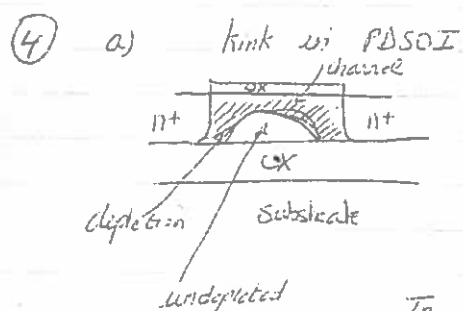 ④ a) Kink in PDSOI
channel
ox
n+ n+
ox
depletion substrate
undepleted
In